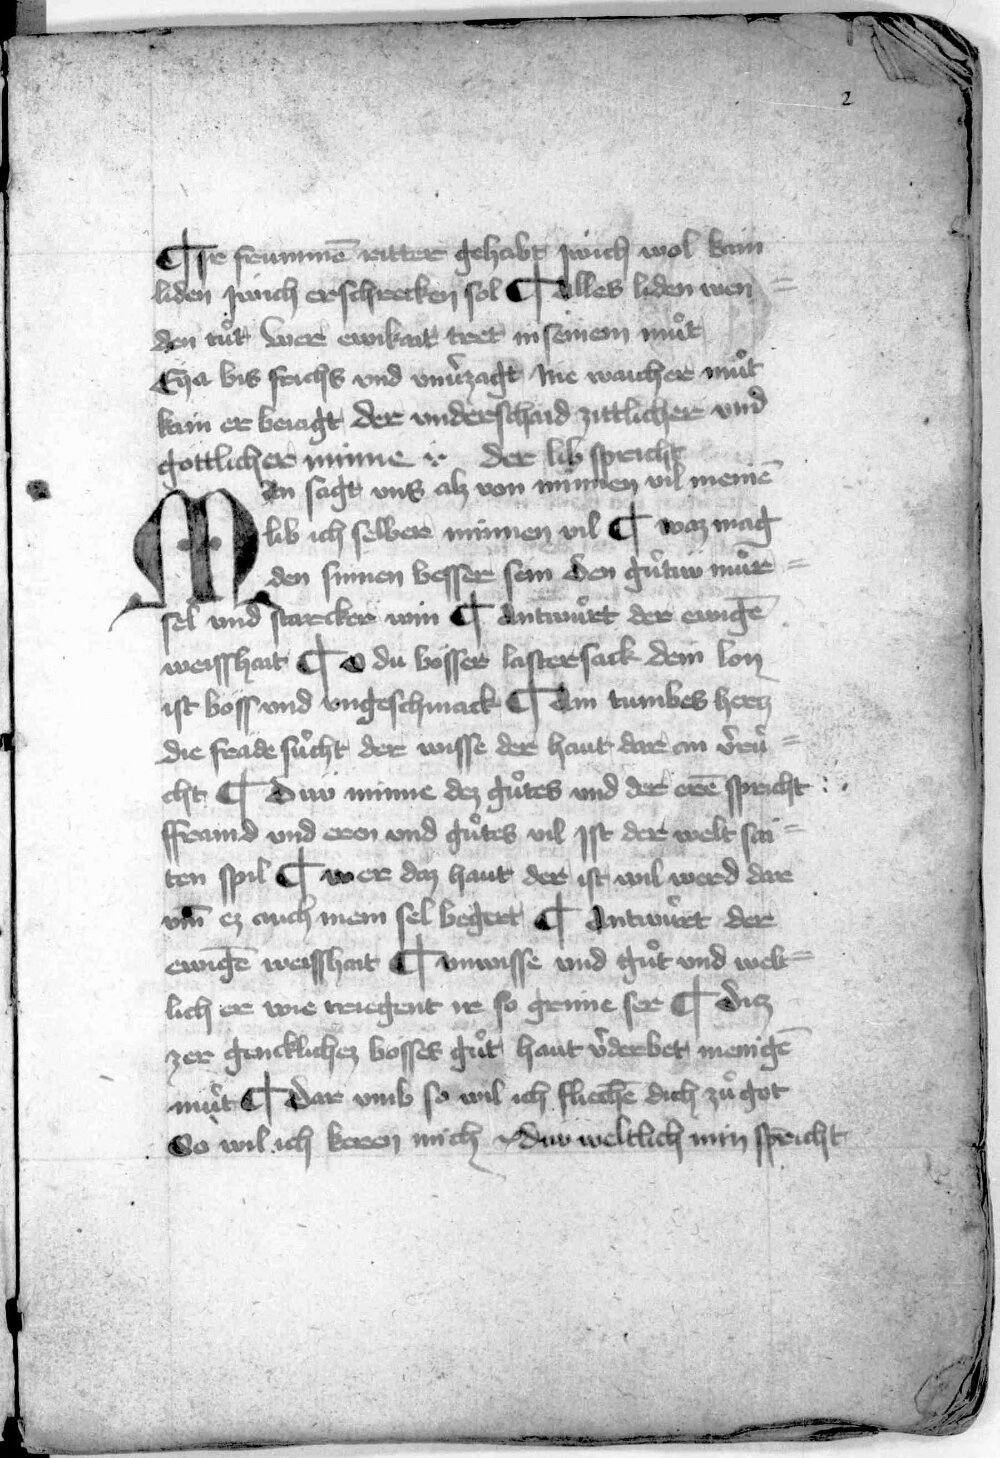 2
¶ Ir frummē ritter gehabt iwich wol kain
liden iwich erschrecken sol ¶ Alles liden wen =
den tuͦt Wer ewikait tret in seinem muͦt
Eya bis frichs vnd vnv̄zagt Nie waicher muͦt
kain er beiagt Der vnderschaid zittlicher vnd
gottlicher minne der lib spricht
Man sagt vns alz von minnen vil meinē
lib ich selber minnen vil ¶ waz mag
den sinnen besser sein Den guͦtiw muͦr =
sel vnd starcker win ¶ Antwuͦrt der ewigē
weisshait ¶ O du bosser lastersack dein lon
ist boss vnd vngeschmack ¶ Ain tumbes hertz
die fraide suͦcht der wisse der haut dar an v̄ruͦ =
cht ¶ Diw minne dez guͦtes vnd der erē spricht
ffraind vnd eren vnd guͦtes vil Ist der welt sai =
ten spil ¶ wer daz haut der ist wil werd dar
vm̄ ez auch mein sel begert ¶ Antwuͦrt der
ewigē weisshait ¶ vnwisse vnd guͦt vnd welt =
lich er wie triegent ir so grime ser ¶ Ditz
zer gencklichez bosses guͦt haut v̄derbet menigē
muͦt ¶ Dar vmb so wil ich fliechē dich zuͦ got
So wil ich keren mich diw weltlich min spricht